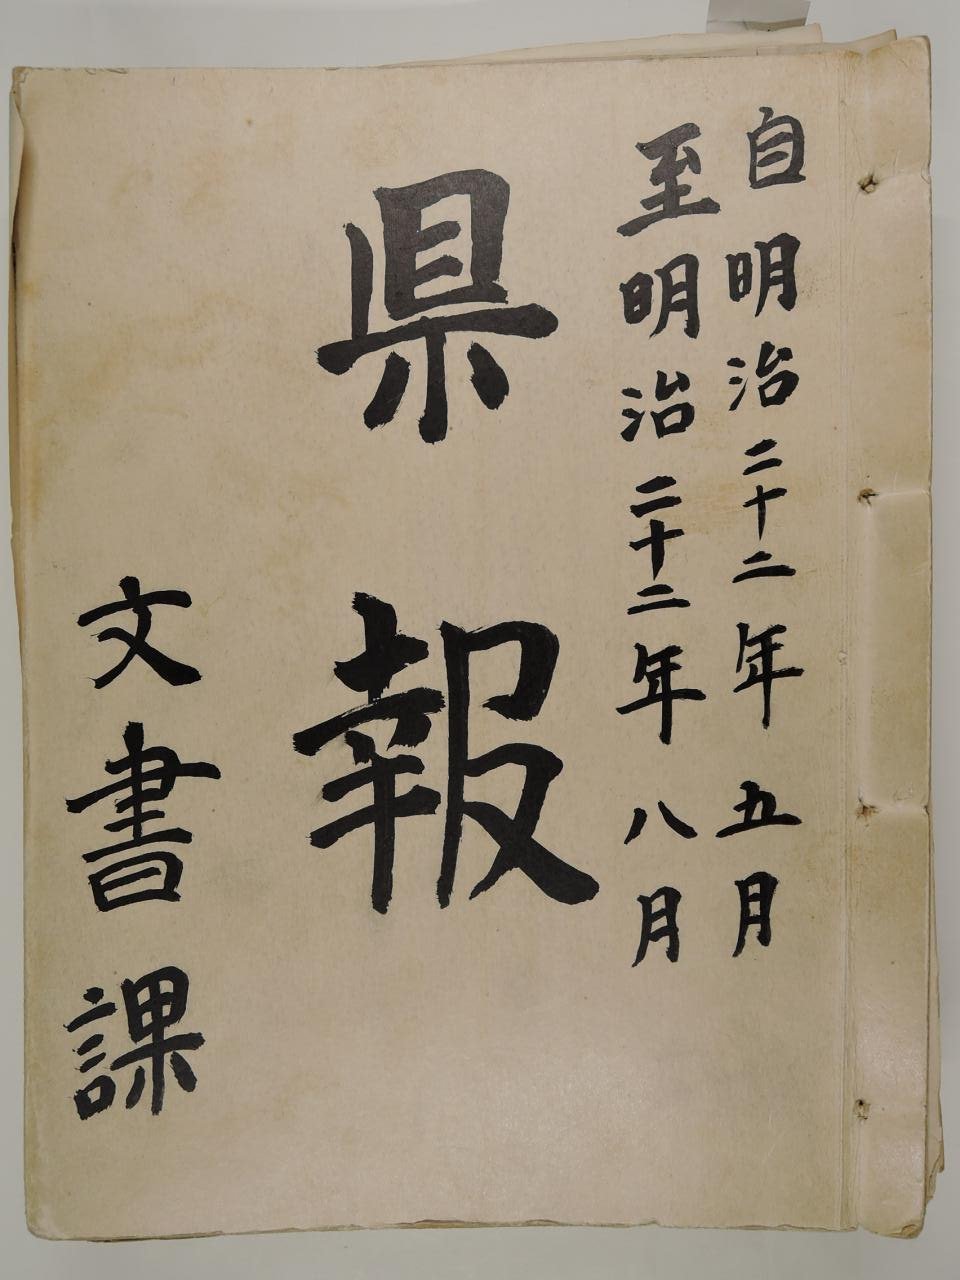 自明治二十二年五月
至明治二十二年八月
県報
文書課